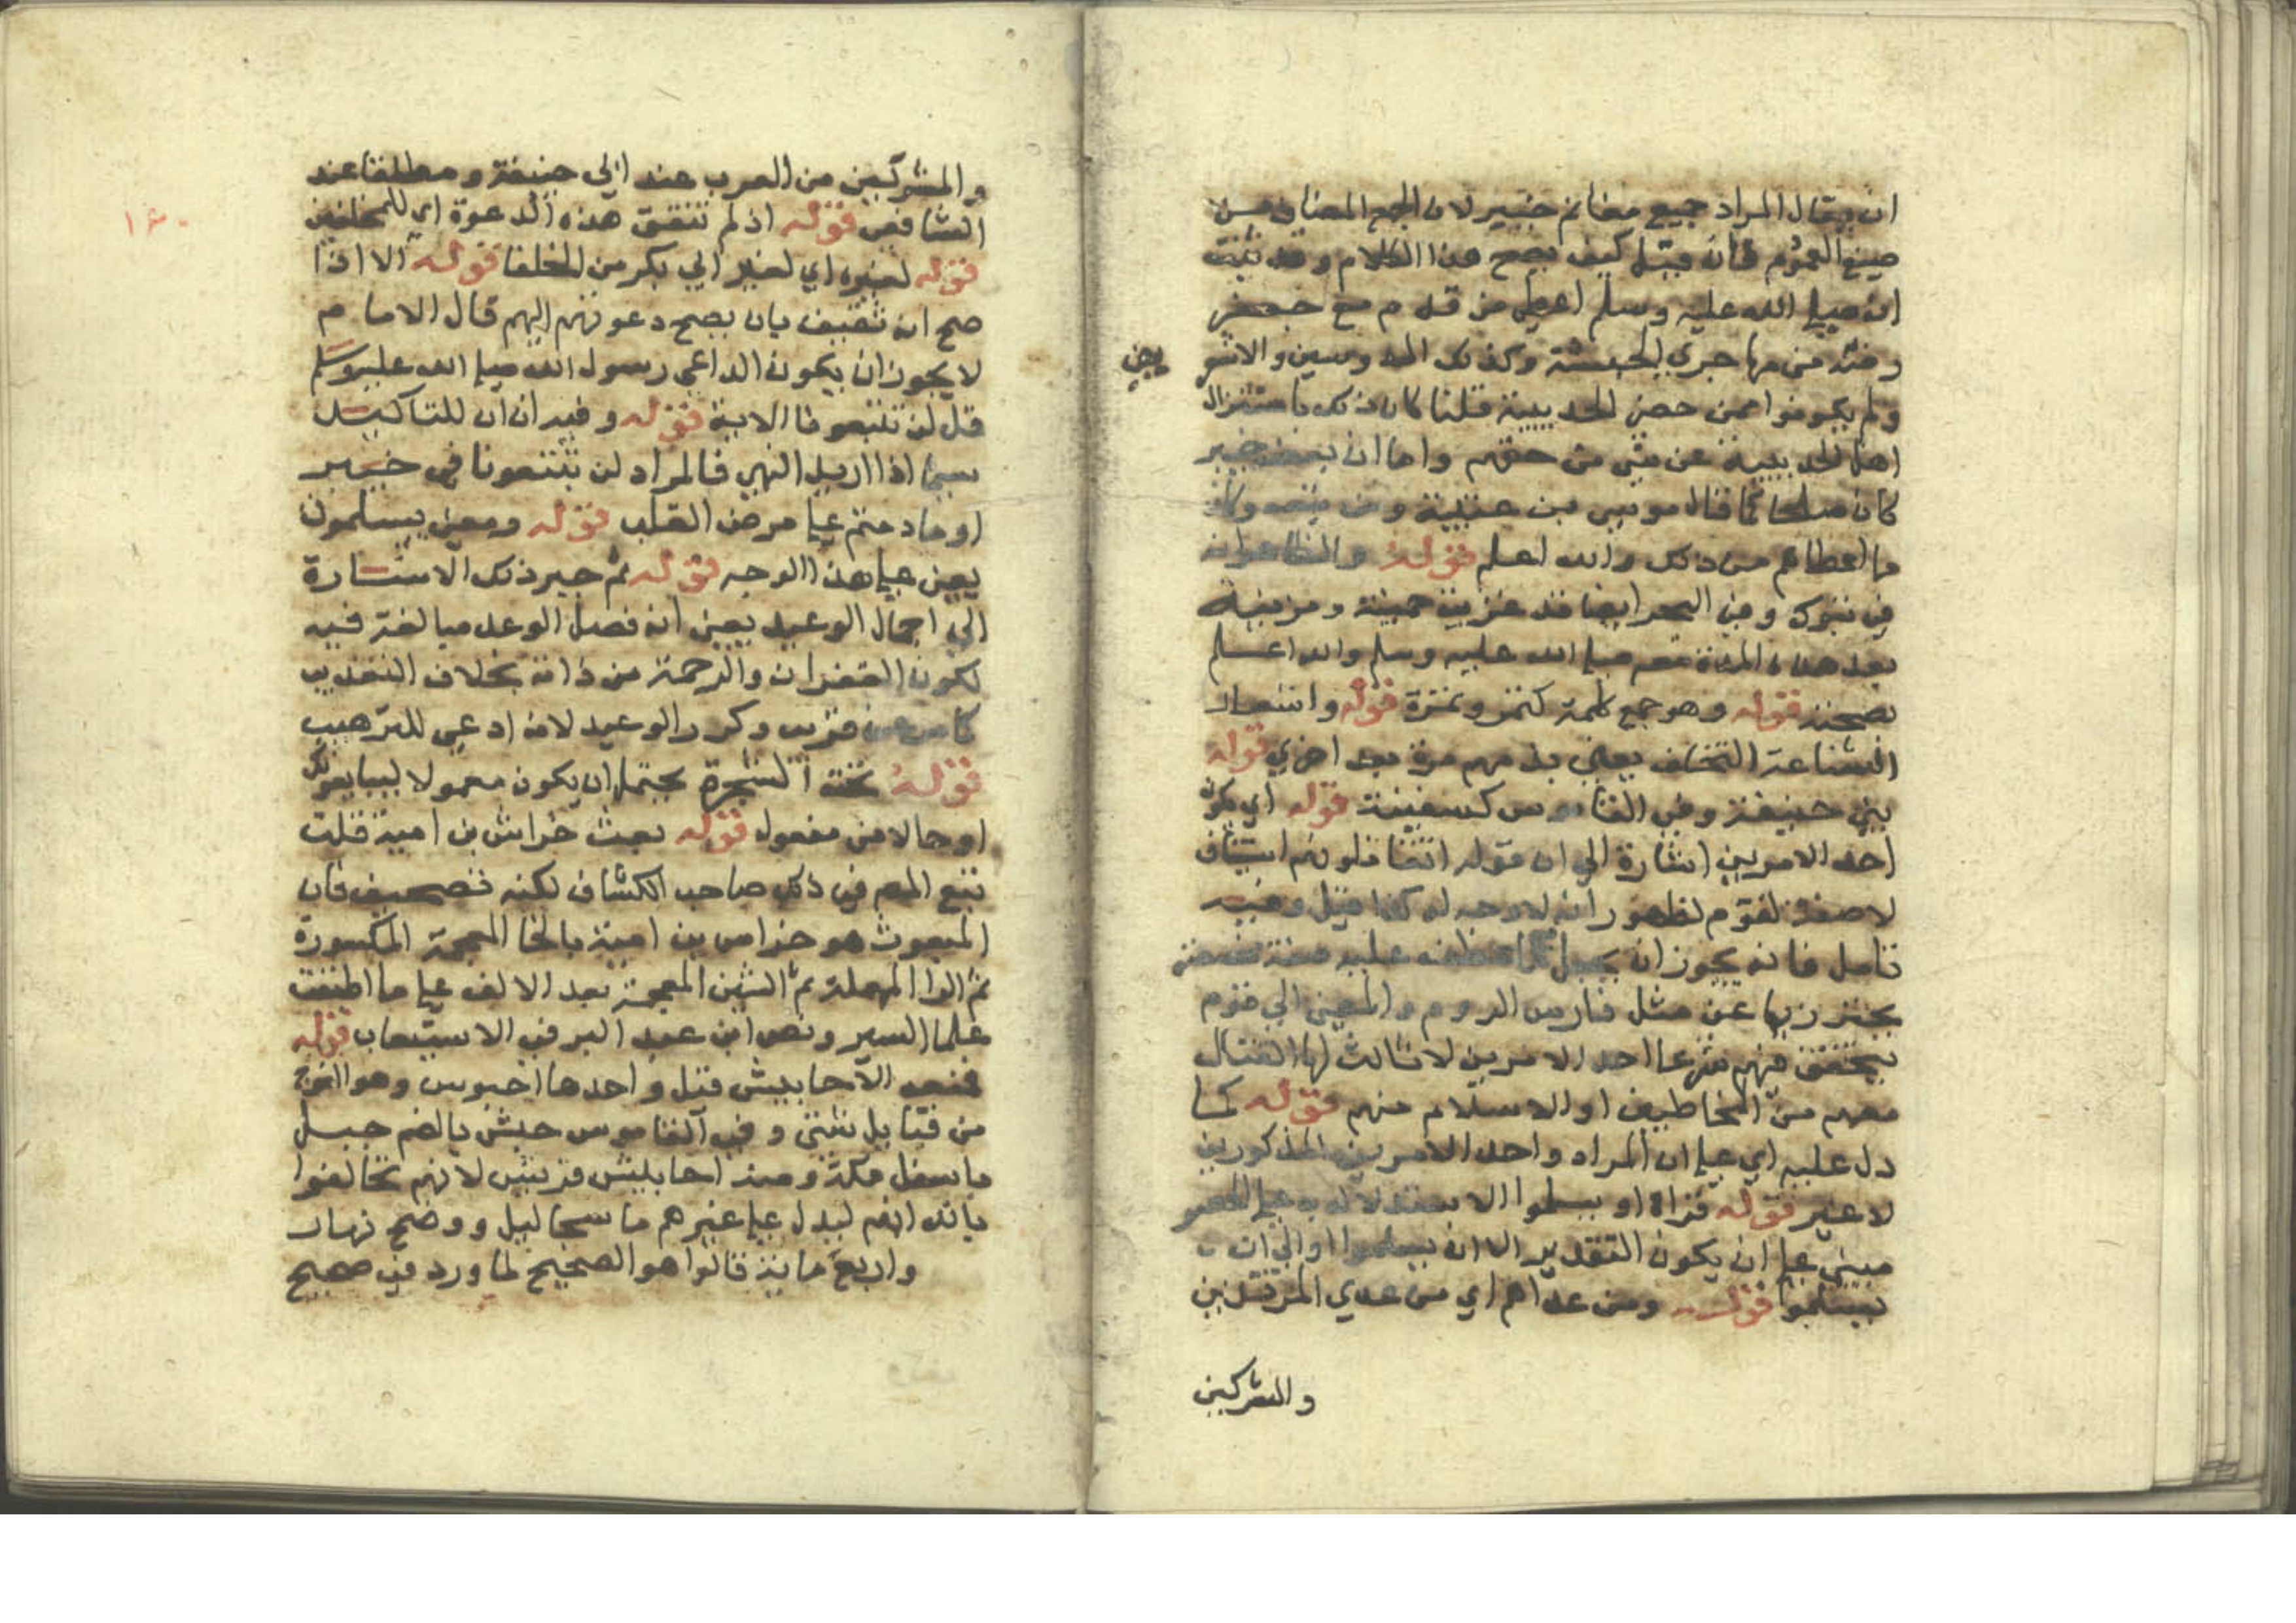 ان يقال المراد جميع مغانم خيبر لان الجمع المضاف من
صيغ العموم فان قيل كيف يصح هذا الكلام وقد ثبت
انه صلى الله عليه وسلم اعطى من قدم مع جعفر
رضه من مهاجري الحبشة وكذلك الدوسين والاشعر
يين
ولم يكونوا ممن حضر الحديبية قلنا كان ذلك باستنزال
اهل الحديبية عن شي من حقهم واما ان بعض خيبر
كان صلحا كما قال موسى بن عقبة ومن تبعه وكان
ما اعطاهم من ذلك والله اعلم قوله والظاهر انه
في تبوك وفي البحر ايضا قد غزت جهينة ومزينة
بعد هذه المدة معه صلى الله عليه وسلم والله اعلم
بصحته قوله وهو جمع كلمة كتمر وتمرة قوله واشعار
الشناعة التخلف يعني بذمهم مرة بعد اخري قوله
بني حنيفة وفي القاموس كسفينة قوله اي يكون
احد الامرين اشارة الي ان قوله تقاتلونهم استيناف
لا صفة لقوم لظهور انه لا وجه له كذا قيل وفيه
تامل فانه يجوز ان يجعل عطف عليه صفة
يحترز بها عن مثل فارس الروم والمعني الي قوم
يتحقق فيهم شرعا احد الامرين لا ثالث لها القتال
معهم من المخاطبين او الاسلام منهم قوله كما
دل عليه اي على ان المراد واحد الامرين المذكورين
لا غير قوله قراة او يسلموا الاستدلال به على الحصر
مبني على ان يكون التقدير الا ان يسلموا او الي ان
يسلموا قوله ومن عداهم اي من عدي المرتدين
والمشركين
١٦٠
والمشركين من العرب عند ابي حنيفة ومطلقا عند
الشافعي قوله اذ لم تتفق هذه الدعوة اي للمخلفين
قوله لغيره اي لغير ابي بكر من الخلفا قوله الا اذا
صح ان ثقيف بان يصح دعوتهم اليهم قال الامام
لا يجوز ان يكون الداعي رسول الله صلى الله عليه وسلم
قل لن تتبعونا الاية قوله وفيه ان لن للتاكيد
سيما اذا اريد النهي فالمراد لن تتبعونا في خيبر
او ما دمتم على مرض القلب قوله ومعني يسلمون
يعني على هذا الوجه قوله ثم جبر ذلك الاشارة
الي اجمال الوعيد يعني انه فصل الوعد مبالغة فيه
لكون الغفران والرحمة من ذاته بخلاف التعذيب
كما مر عن قريب وكرر الوعيد لانه ادعي للترهيب
قوله تحت الشجرة يحتمل ان يكون معمولا ليبايعونك
او حالا من مفعول قوله بعث خراش بن امية قلت
تبع المص في ذلك صاحب الكشاف لكنه تصحيف فان
المبعوث هو خراش بن امية بالخا المعجمة المكسورة
ثم الرا المهملة ثم الشين المعجمة بعد الالف على ما اطبقت
علما السير ونص ابن عبد البر في الاستيعاب قوله
فمنعه الاحابيش قيل واحدها احبوش وهو الفوج
من قبايل شتي وفي القاموس حبش بالضم جبل
باسفل مكة ومنه احابيش قريش لانهم تحالفوا
بالله انهم ليد على غيرهم ما سجا ليل ووضح نهار
واربع ماية قالوا هو الصحيح لما ورد في صحيح